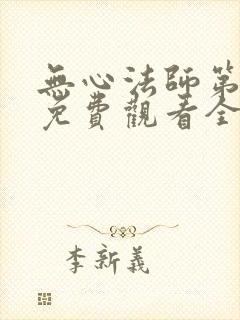 無心法師第
免費觀看全
李新義